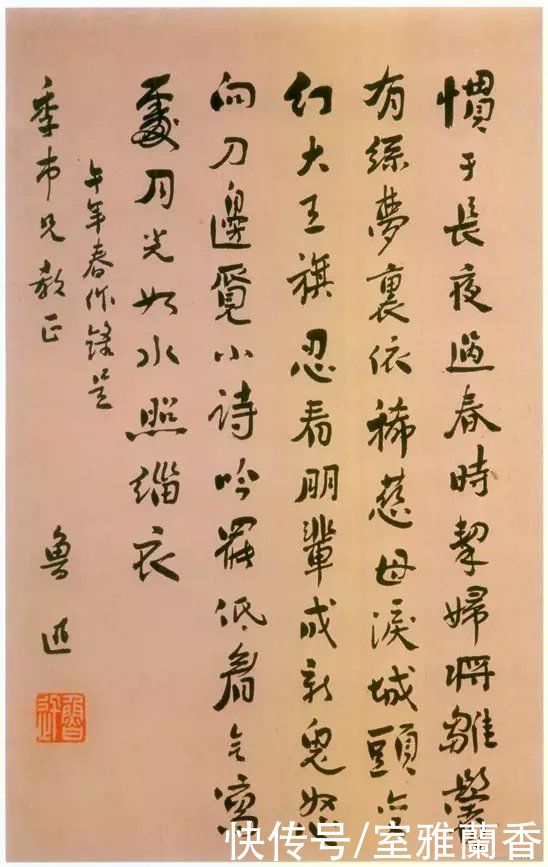 慣于長夜過春時挈婦將雛鬢
有絲夢裏依稀慈母淚城頭變
幻大王旗忍看朋輩成新鬼怒
向刀邊覓小詩吟罷低眉無寫
處月光如水照緇衣
午年春作錄呈
季市兄教正
魯迅
魯迅
快传号/室雅蘭香